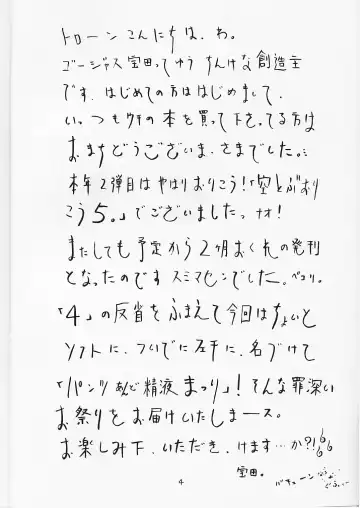 トローン こんにちは、わ。
ゴージャス宝田ってゆう ちんけな創造主
です、はじめての方ははじめまして、
い、つもウチの本を買って下さってる方は
おまちどうございま、さまでした。
本年2弾目はやはりおりこう!「空とぶおり
こう5。」でございましたっ ナオ!
またしても予定から2ヶ月おくれの発刊
となったのです スミマセンでした。ペコリ。
「4」の反省をふまえて今回はちょいと
ソフトに、ついでに左手に、名づけて
「パンツあんど精液まつり」! そんな罪深い
お祭りをお届けいたしまース。
お楽しみ下、いただき、けます…か?!666
宝田。
バキューン
4